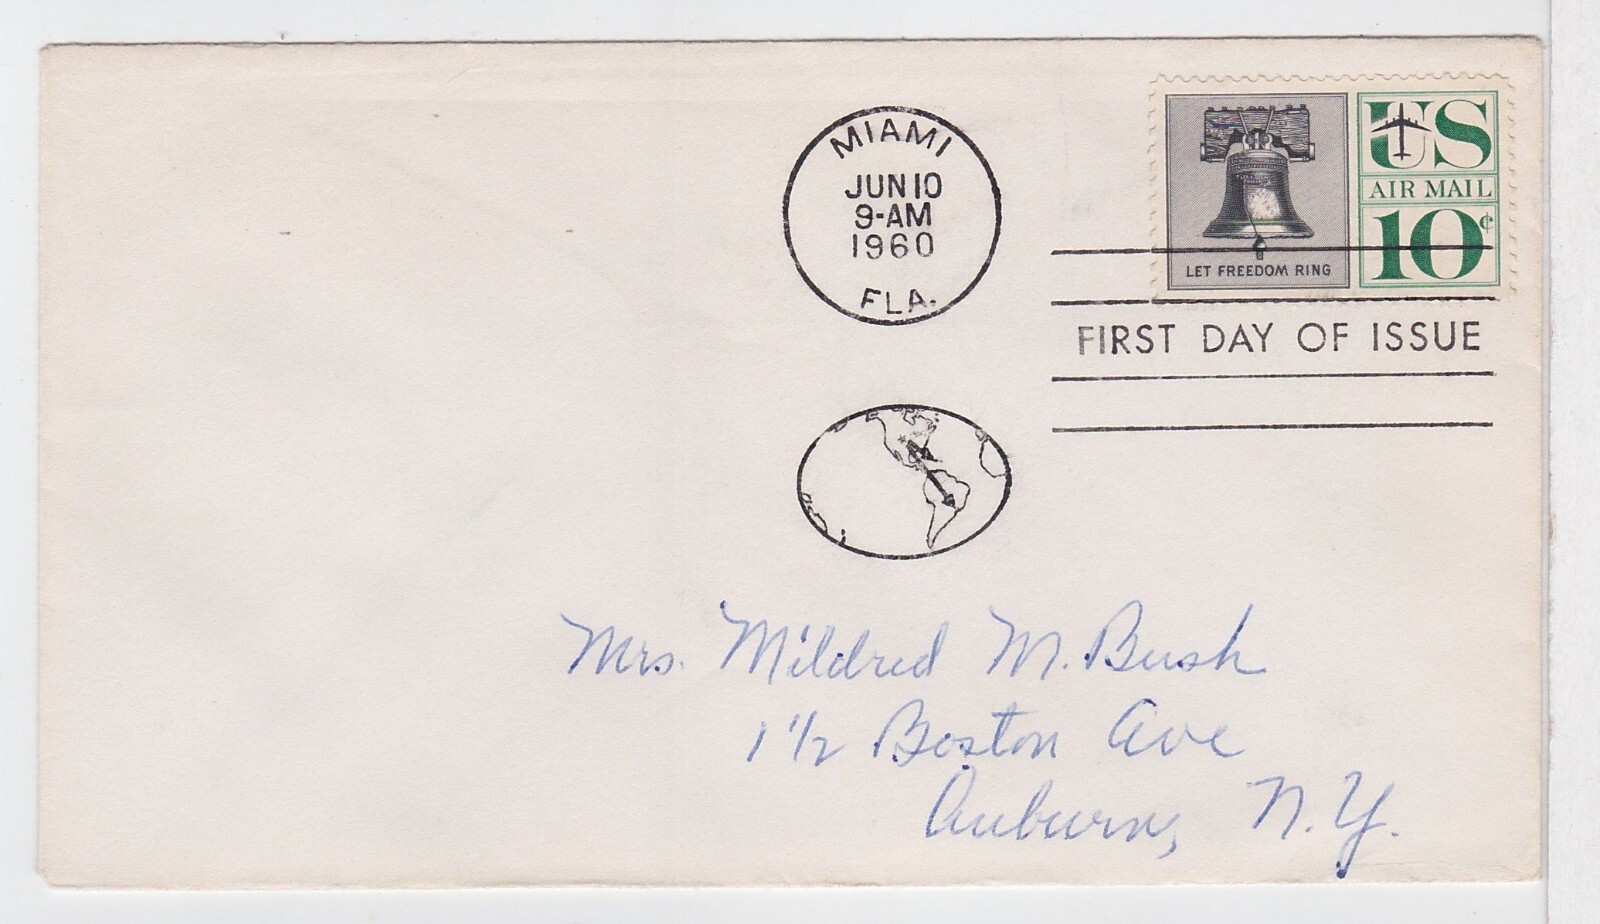 MIAMI
JUN 10
9-AM
1960
FLA.
LET FREEDOM RING
US
AIR MAIL
10¢
FIRST DAY OF ISSUE
Mrs. Mildred M. Bush
1 1/2 Boston Ave
Auburn, N.Y.